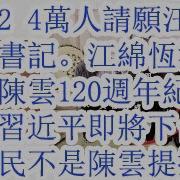 2 4萬人請願汪
書記。江綿恆
陳雲120週年紀
習近平即將下
民不是陳雲提